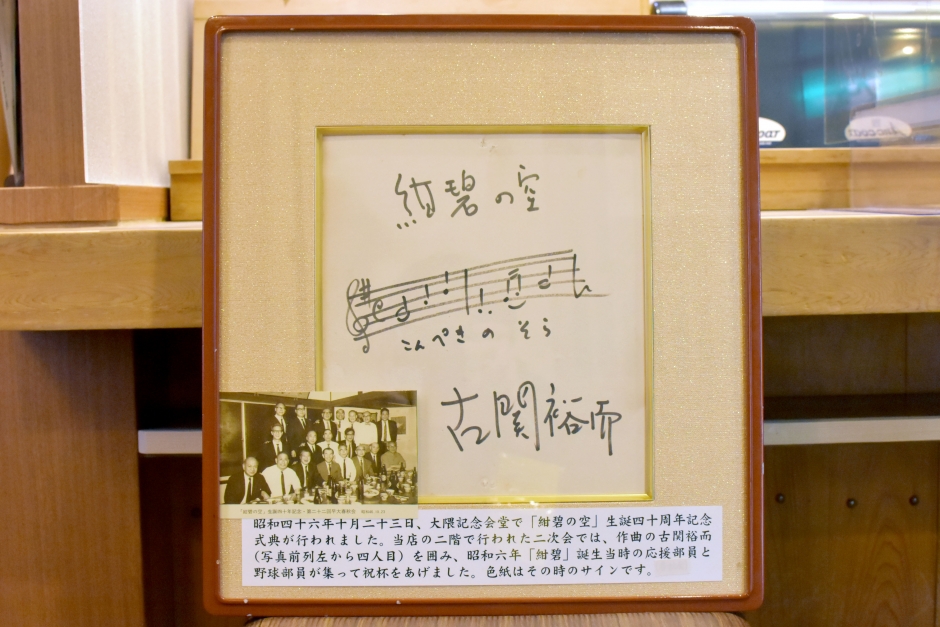 紺碧の空
こんぺきの そら
古関裕而
「紺碧の空」生誕四十年記念・第二十二回早大傘好会
昭和四十六年十月二十三日、大隈記念会堂で「紺碧の空」生誕四十周年記念
式典が行われました。当店の二階で行われた二次会では、作曲の古関裕而
(写真前列左から四人目)を囲み、昭和六年「紺碧」誕生当時の応援部員と
野球部員が集って祝杯をあげました。色紙はその時のサインです。